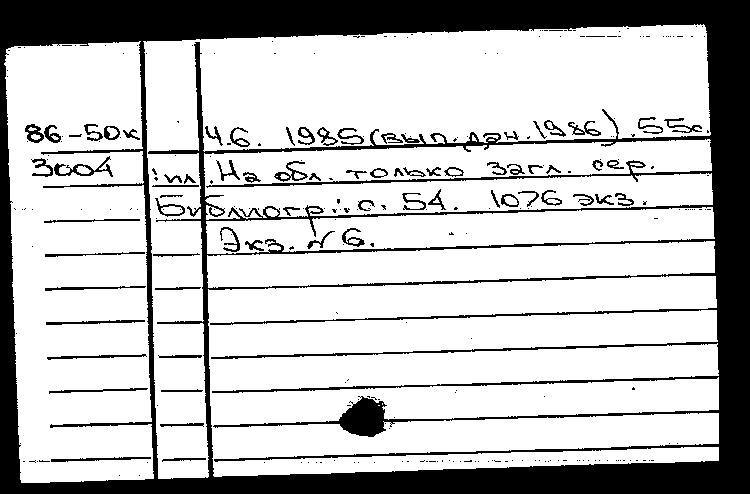 86-50к Ч.6. 1985 (вып. дан. 1986). 55с.
3004 : ил. На обл. только загл. сер.
Библиогр.: с. 54. 1076 экз.
Экз. № 6.